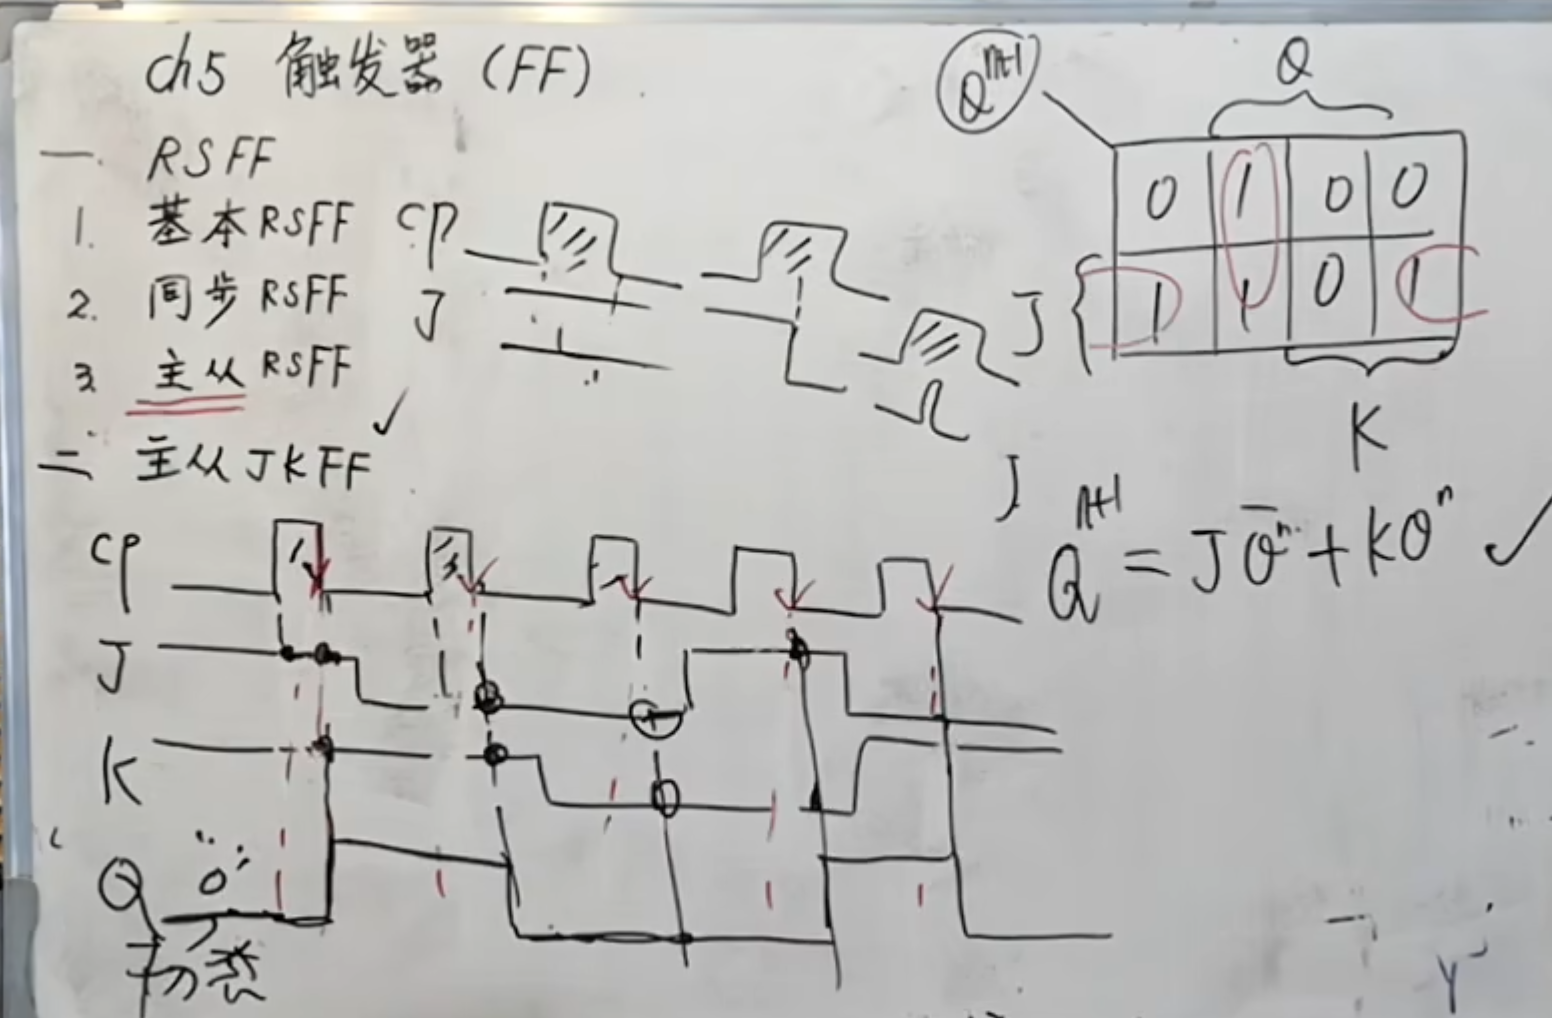 ch5 触发器 (FF)
一. RSFF
1. 基本RSFF
2. 同步RSFF
3. 主从RSFF
二 主从JKFF ✓
CP
J
Qⁿ⁺¹
Q
0 1 0 0
J
1 1 0 1
K
J
Qⁿ⁺¹ = JQ̄ⁿ + KQⁿ ✓
CP
J
K
Q "0"
初态